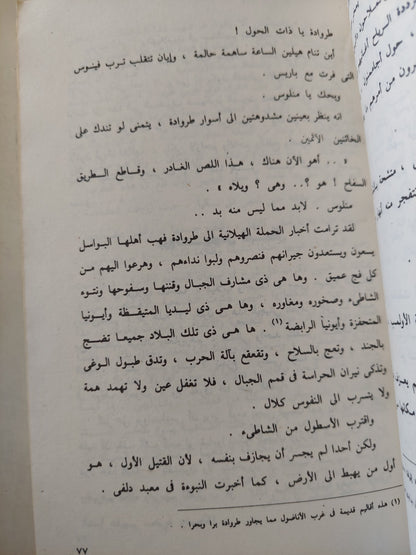 طروادة يا ذات الحول !
أين تنام هيلين الساعة ساهمة حالمة ، وإيان تتقلب ترب فينوس
التى فرت مع باريس .
ويحك يا منلوس .
انه ينظر بعينين مشدوهتين الى أسوار طروادة ، يتمنى لو تندك على
الخائنين الآثمين .
« .. أهو الآن هناك ، هـذا اللص الغادر ، وقـاطع الطريق
السفاح ! هو ؟ .. وهى ؟ ويلاه » .
منلوس . لابد مما ليس منه بد ..
لقد ترامت أخبار الحملة الهيلانية الى طروادة فهب أهلها البواسل
يسعون ويستعدون جيرانهم فنصروهم ولبوا نداءهم ، وهرعوا اليهم من
كل فج عميق . وها هى ذى مشارف الجبال وقننها وسفوحها ونتوء
الشاطىء وصخوره ومغاوره ، وها هـى ذى ليـديا المتيقظة وأيونيا
المتحفزة وأيونيا الرابضة (١) . ها هـى ذى تلك البـلاد جميعـا تضـج
بالجند ، وتعج بالسلاح ، وتقعقع بآلة الحرب ، وتدق طبول الوغى
وتذكى نيران الحراسة فى قمم الجبال ، فلا تغفل عين ولا تهمد همة
ولا يتسرب الى النفوس كلال .
واقترب الأسطول من الشاطىء .
ولكن أحدا لم يجسر أن يجازف بنفسه ، لأن القتيل الأول ، هـو
أول من يهبط الى الأرض ، كما أخبرت النبوءة فى معبد دلفى .
(١) هذه أقاليم قديمة فى غرب الأناضول مما يجاور طروادة برا وبحرا .
٧٧